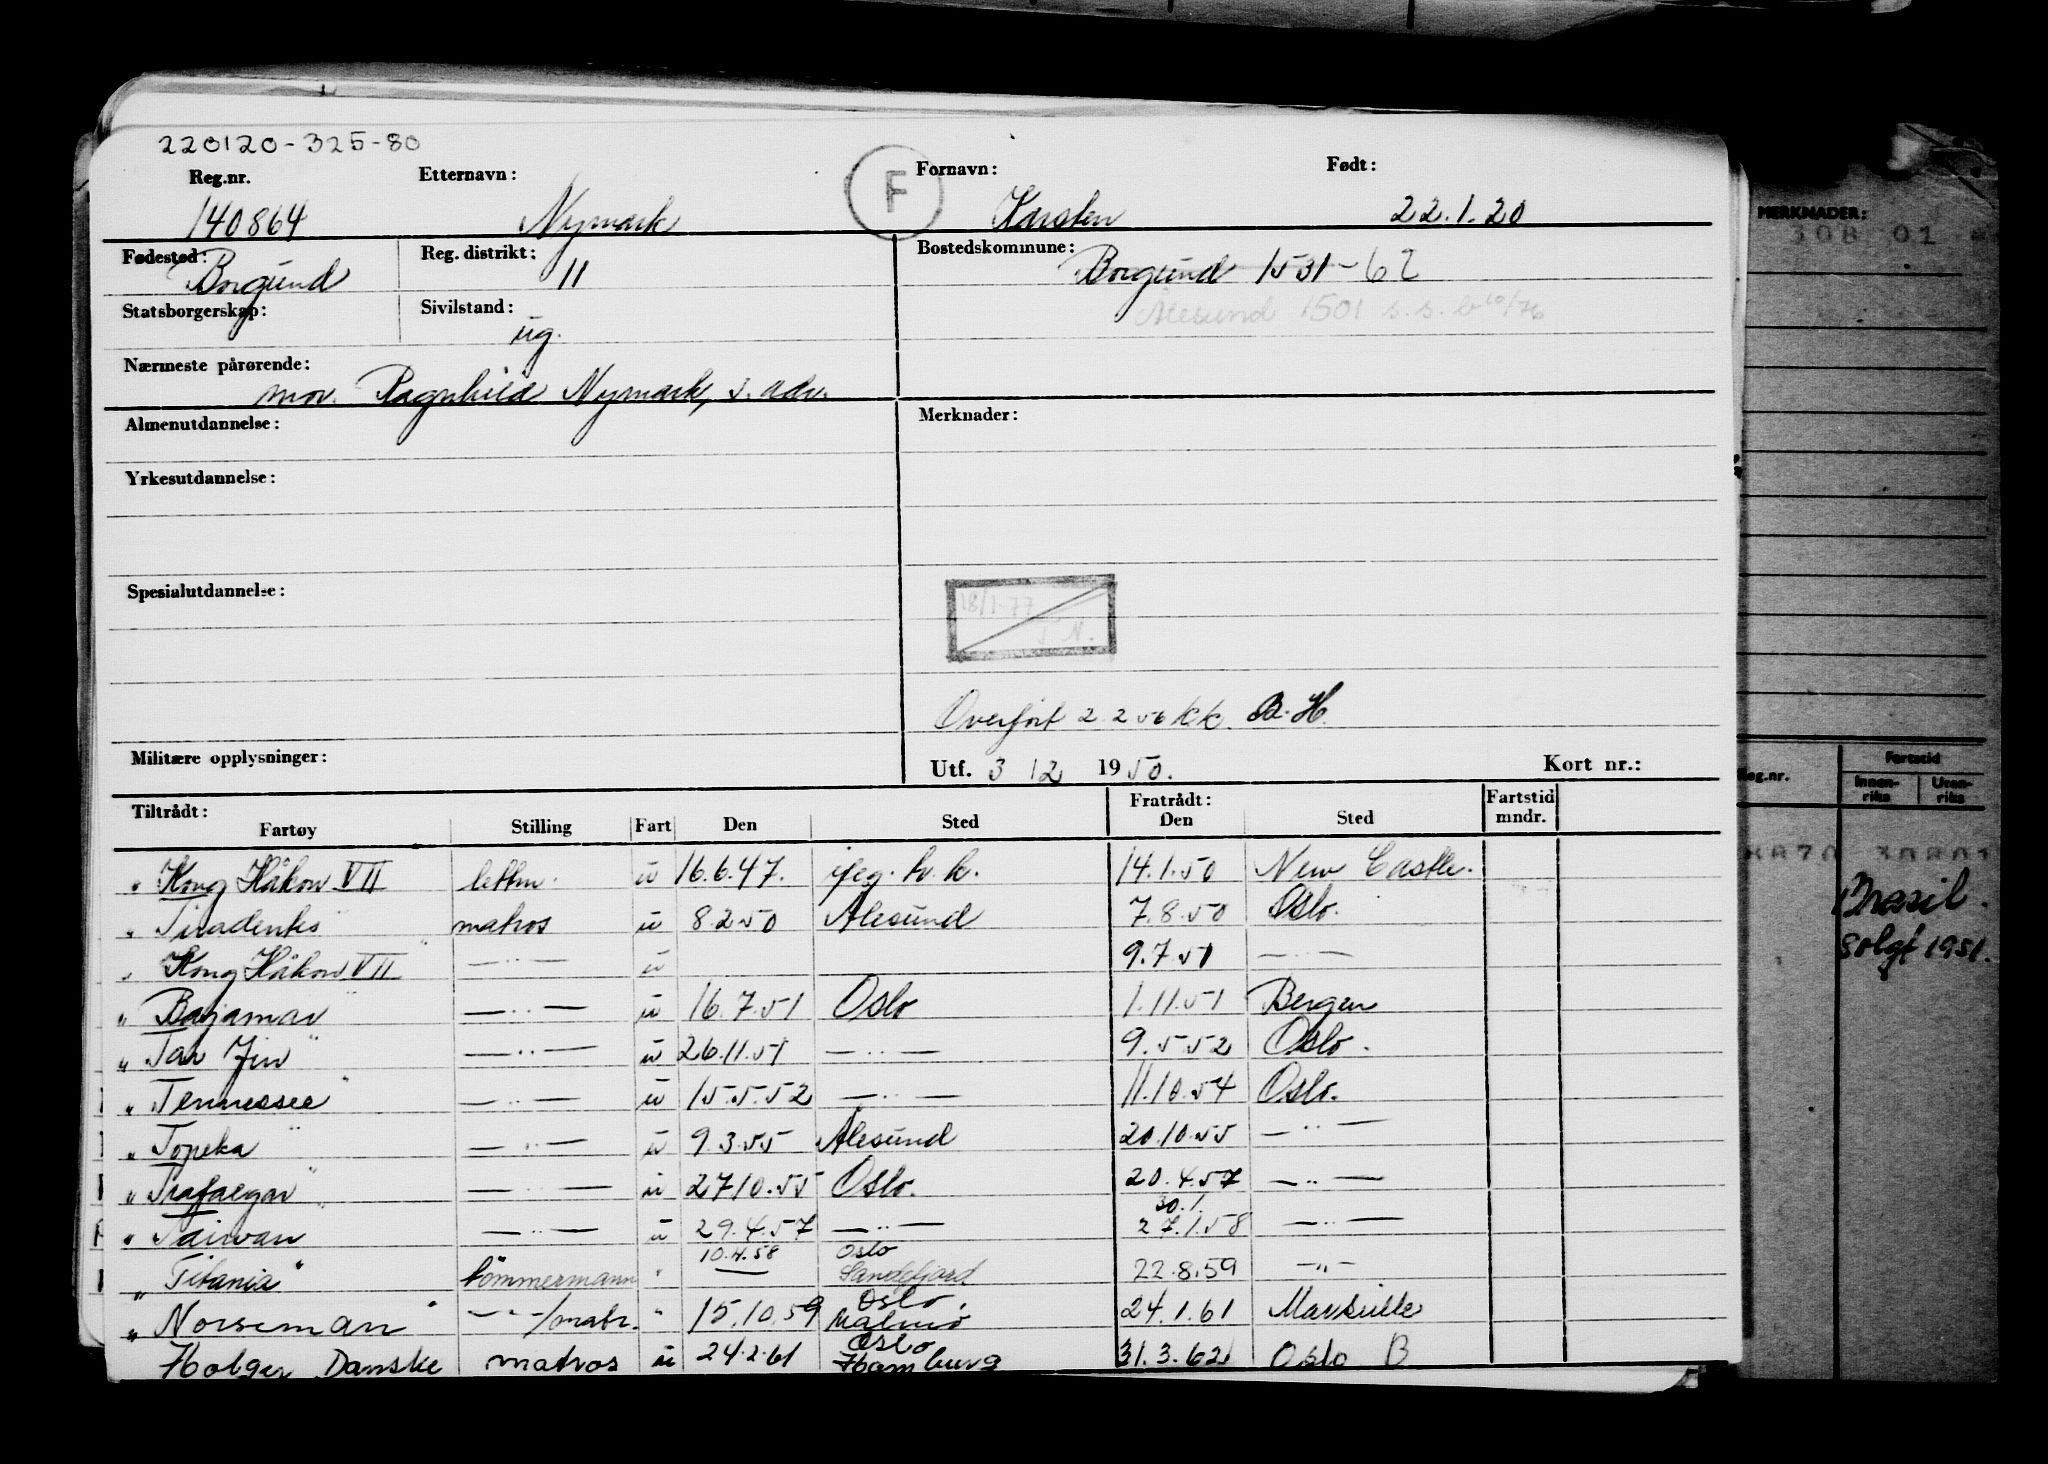 220120-325-80
Reg.nr. Etternavn: F Fornavn: Født:
140864 Nymark Karsten 22.1.20
Fødested: Reg. distrikt: Bostedskommune:
Borgund 11 Borgund 1531-62
Statsborgerskap: Sivilstand: Ålesund 1501 s.s.b 10/76
ug.
Nærmeste pårørende:
mor. Ragnhild Nymark, s. adr.
Almenutdannelse: Merknader:
Yrkesutdannelse:
Spesialutdannelse:
18/1-77
T.N.
Overført 2.2.56 kk. B.H.
Militære opplysninger: Utf. 3 12 1950. Kort nr.:
Tiltrådt: Fratrådt: Fartstid
Fartøy Stilling Fart Den Sted Den Sted mndr.
" Kong Håkon VII lettm. u 16.6.47. 14.1.50 New Castle.
" Tiradentes matros u 8.2.50 Ålesund 7.8.50 Oslo.
" Kong Håkon VII —"— u 9.7.51 —"—
" Bajamar —"— u 16.7.51 Oslo 1.11.51 Bergen
" Tai Yin" —"— u 26.11.51 —"— 9.5.52 Oslo.
" Tennessee" —"— u 15.5.52 —"— 11.10.54 Oslo.
" Topeka" —"— u 9.3.55 Ålesund 20.10.55 —"—
" Trafalgar" —"— u 27.10.55 Oslo. 20.4.57 —"—
30.1.
" Taiwan —"— u 29.4.57 —"— 27.1.58 —"—
10.4.58 Oslo
" Titania" tømmermann " — Sandefjord 22.8.59 —"—
Oslo.
" Norseman" —"—/matr. " 15.10.59 Malmö 24.1.61 Marseille
Oslo
Holger Danske matros u 24.2.61 Hamburg 31.3.62 Oslo B
MERKNADER:
308 01
Reg.nr. Fartstid
Innen-riks Uten-riks
Brasil.
Solgt 1951.